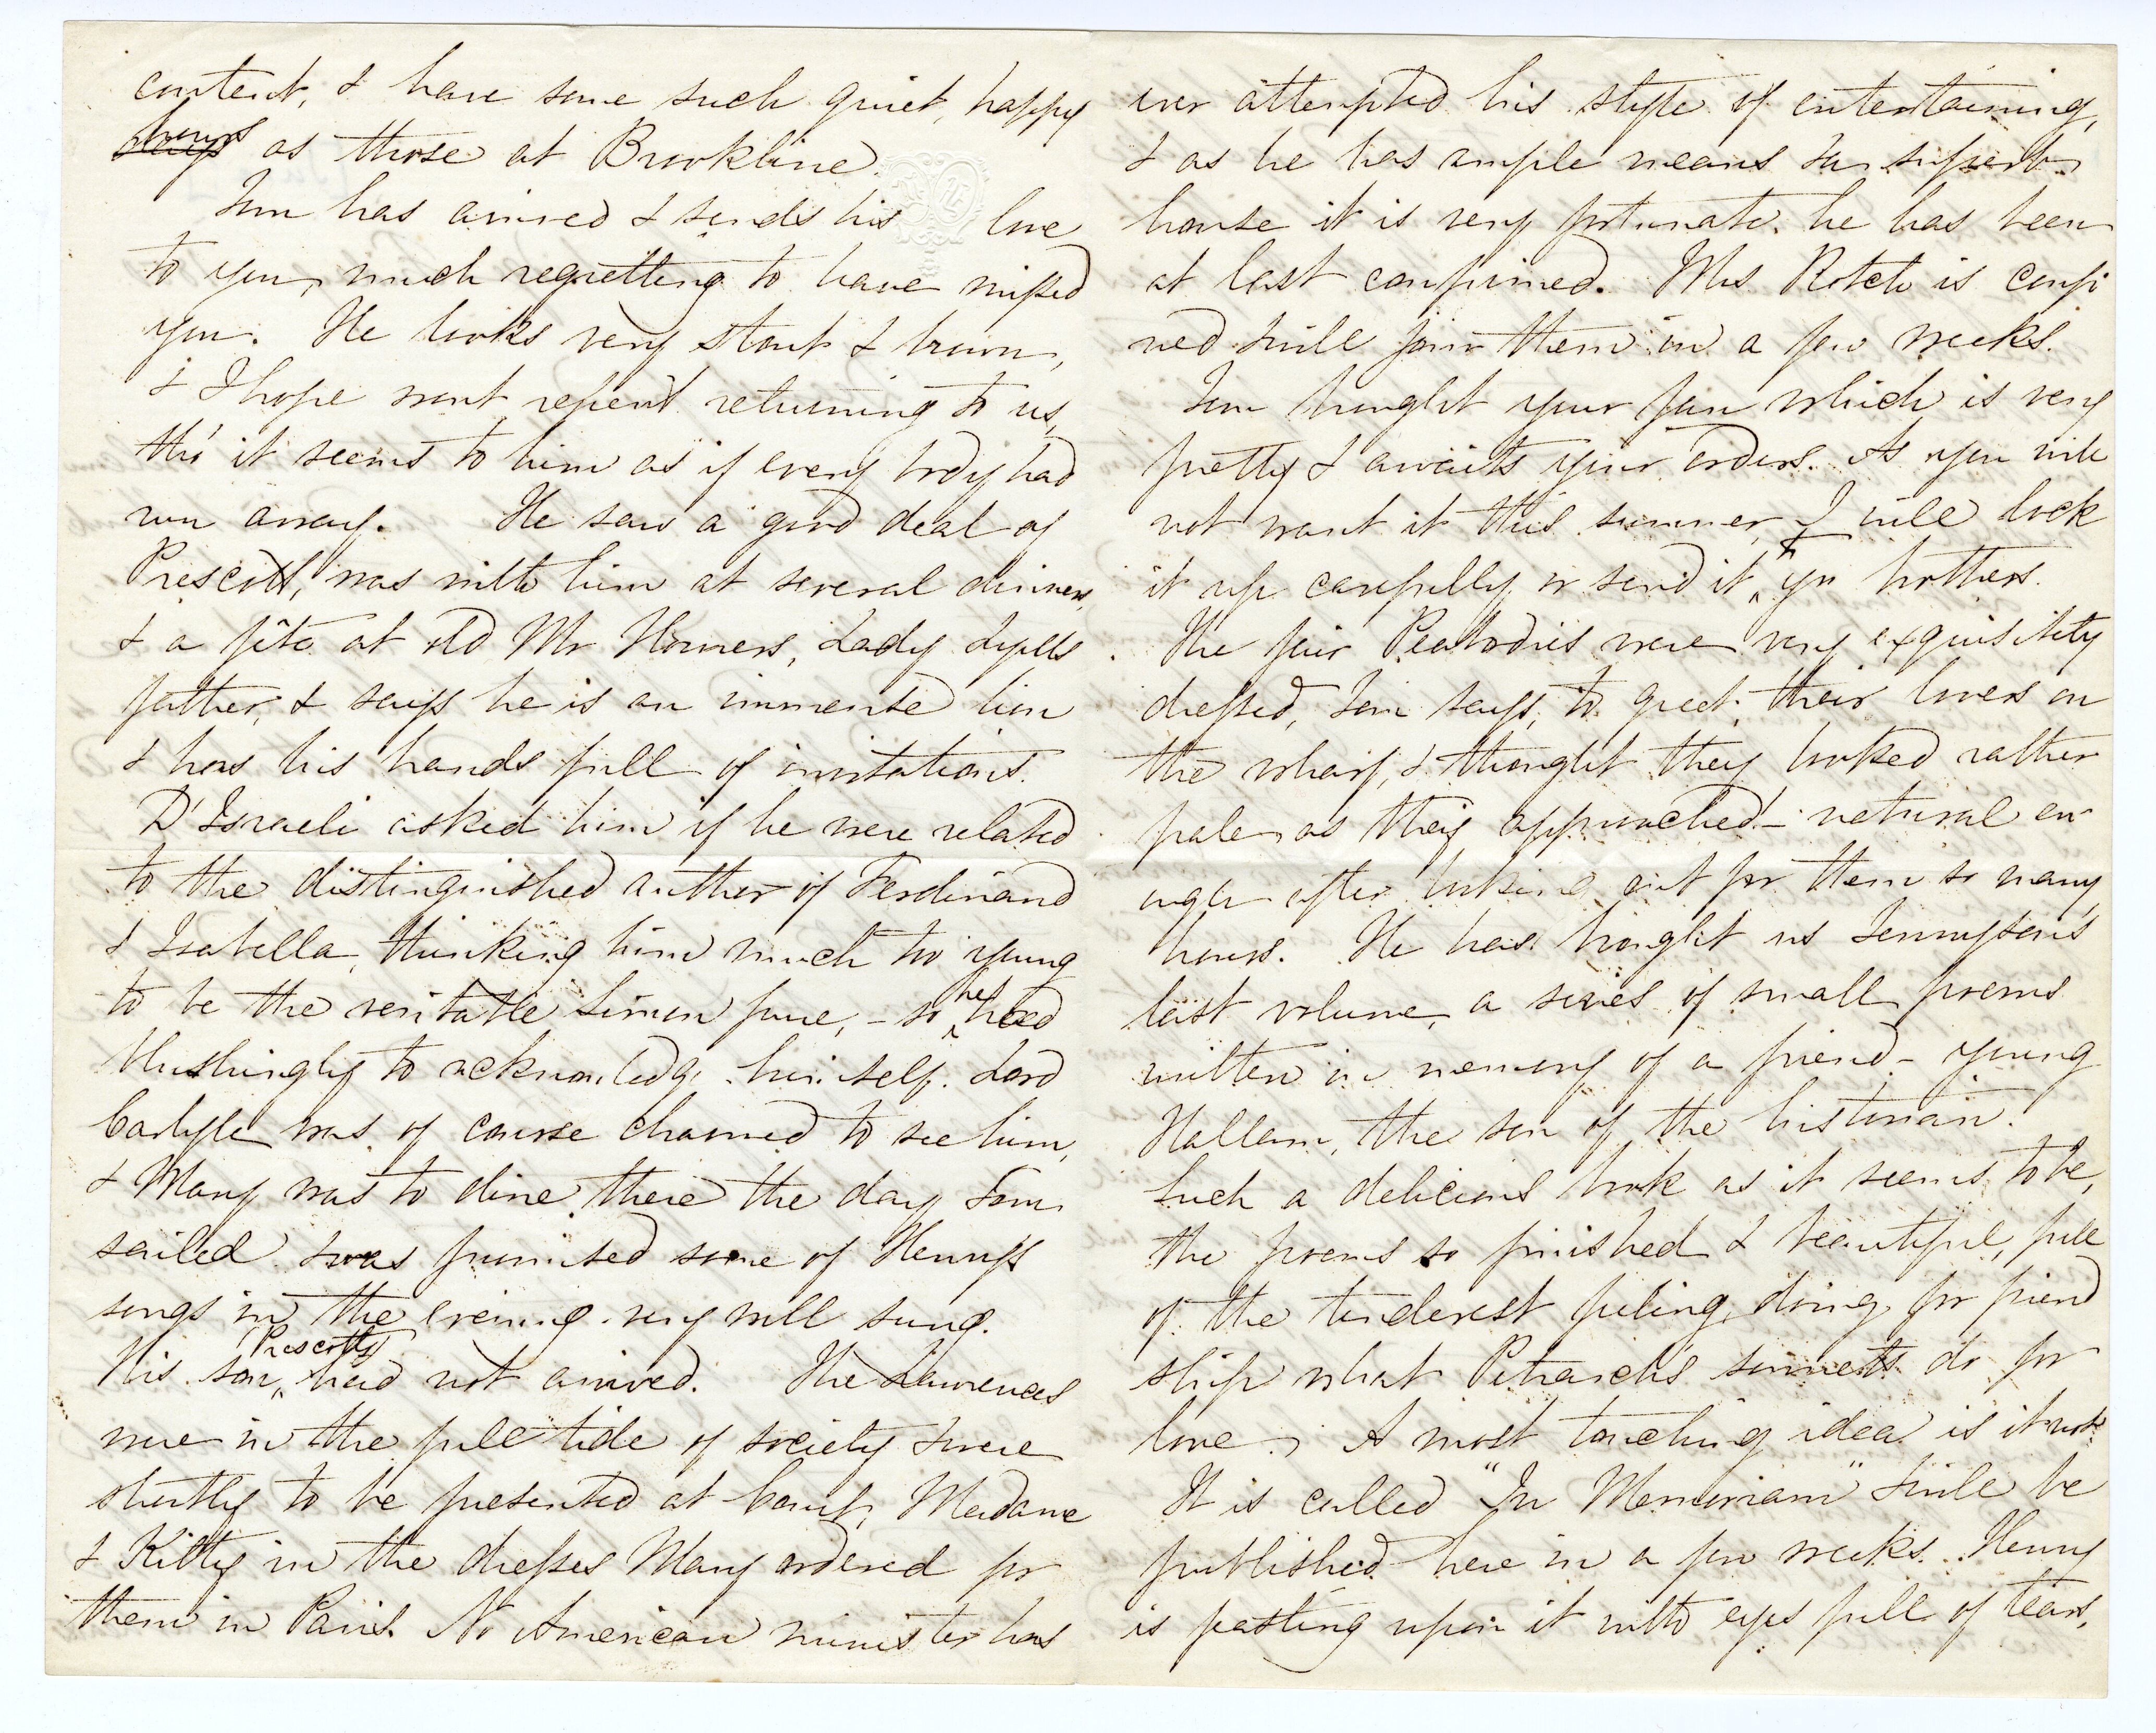 content, & have some such quiet, happy
days hours as those at Brookline.
Tom has arrived & sends his love
to you, much regretting to have missed
you. He looks very stout & brown,
& I hope wont repent returning to us,
tho' it seems to him as if every body had
run away. He saw a good deal of
Prescott, was with him at several dinners,
& a fête at old Mr Horners, Lady Lyells
father, & says he is an immense lion
& has his hands full of invitations.
D'Israeli asked him if he were related
to the distinguished author of Ferdinand
& Isabella, thinking him much too young
to be the veritable Simon pure, - so he had
blushingly to acknowledge himself. Lord
Carlyle was of course charmed to see him,
& Mary was to dine there the day Tom
sailed & was promised some of Henry's
songs in the evening very well sung.
His son, Prescotts had not arrived. The Lawrences
were in the full tide of society & were
shortly to be presented at Court, Madame
& Kitty in the dresses Mary ordered for
them in Paris. No American minister has
ever attempted his style of entertaining,
& as he has ample means & a superb
house it is very fortunate he has been
at last confirmed. Mrs Rotch is confi
ned & will join them in a few weeks.
Tom bought your fan which is very
pretty & awaits your orders. As you will
not want it this summer, I will lock
it up carefully or send it to yr brothers.
The fair Peabodies were very exquisitely
dressed, Tom says, to greet their lovers on
the wharf, & thought they looked rather
pale as they approached - natural en-
ough after looking out for them so many
hours. He has brought us Tennyson's
last volume, a series of small poems
written in memory of a friend - young
Hallam, the son of the historian.
Such a delicious book as it seems to be,
the poems so finished & beautiful, full
of the tenderest feeling, doing for friend
ship what Petrarch's sonnets do for
love. A most touching idea is it not
It is called "In Memoriam" & will be
published here in a few weeks. Henry
is feasting upon it with eyes full of tears,